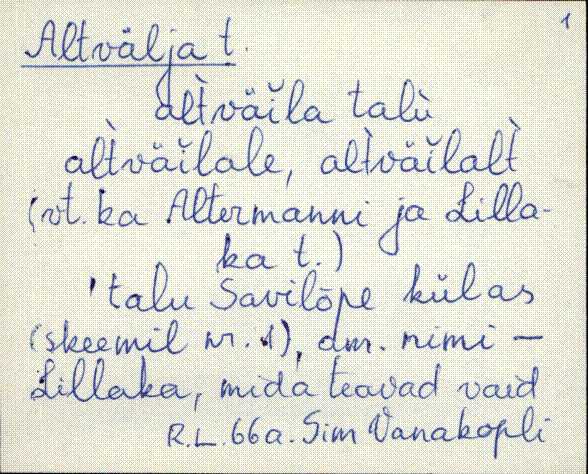 1
Altvälja t.
alt̀väĭla talù
alt̀väĭlale, alt̀väĭlalt̀
(vt. ka Altermanni ja Lilla-
ka t.)
'talu Savilõpe külas
(skeemil nr. 1), am. nimi –
Lillaka, mida teavad vaid
R.L. 66a. Sim Vanakopli